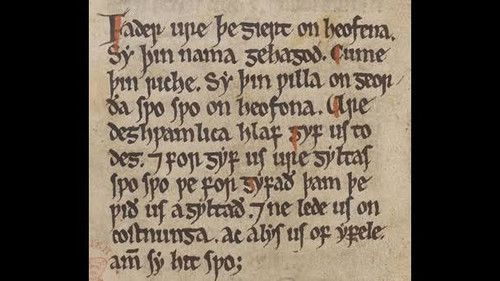 Fader ure þe giert on heofena.
Sy þin nama gehagod. Cume
þin riche. Sy þin ƿilla on geor
ða sƿo sƿo on heofona. Ure
deghƿamlica hlaf gyf us to
deg. ⁊ for gyf us ure gyltas
sƿo sƿo ƿe for gyfad þam þe
ƿid us agyltad. ⁊ ne lede us on
costnunga. ac alys us of yfele.
am̅ sy hit sƿo;